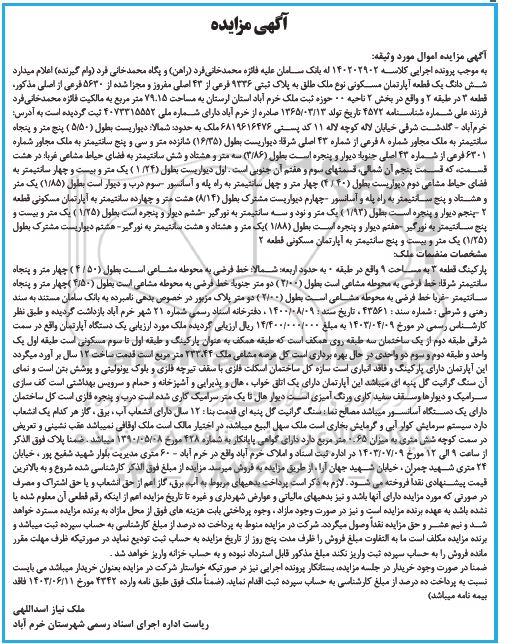 آگهی مزایده
آگهی مزایده اموال مورد وثیقه:
به موجب پرونده اجرایی کلاسه ۱۴۰۲۰۲۹۰۲ له بانک سامان علیه فائزه محمدخانی‌فرد (راهن) و پگاه محمدخانی فرد (وام گیرنده) اعلام میدارد
شش دانگ یک قطعه آپارتمان مسکونی نوع ملک طلق به پلاک ثبتی ۹۳۳۶ فرعی از ۴۳ اصلی مفروز و مجزا شده از ۵۶۳۰ فرعی از اصلی مذکور،
قطعه ۳ در طبقه ۲ و واقع در بخش ۲ ناحیه ۰۰ حوزه ثبت ملک خرم آباد استان لرستان به مساحت ۷۹.۱۵ متر مربع به مالکیت فائزه محمدخانی‌فرد
فرزند علی شماره شناسنامه ۴۵۷۲ تاریخ تولد ۱۳۶۵/۰۳/۱۳ صادره از خرم آباد دارای شماره ملی ۴۰۷۳۳۱۵۵۵۲ ثبت گردیده است به آدرس:
خرم‌آباد - گلدشت شرقی خیابان لاله کوچه لاله ۱۱ کد پستی ۶۸۱۹۶۱۶۴۷۶ ملک به حدود: شمالا: دیواریست بطول (۵/۵۰) پنج متر و پنجاه
سانتیمتر به ملک مجاور شماره ۸ فرعی از شماره ۴۳ اصلی شرقا: دیواریست بطول (۱۶/۳۵) شانزده متر و سی و پنج سانتیمتر به ملک مجاور شماره
۶۳۰۱ فرعی از شماره ۴۳ اصلی جنوبا: دیوار و پنجره است بطول (۳/۸۶) سه متر و هشتاد و شش سانتیمتر به فضای حیاط مشاعی غربا: در هشت
قسمت، که قسمت پنجم آن شمالی، قسمتهای سوم و هفتم آن جنوبی است . اول دیواریست بطول (۱/۲۴) یک متر و بیست و چهار سانتیمتر به
فضای حیاط مشاعی دوم دیواریست بطول (۴/۴۰) چهار متر و چهل سانتیمتر به راه پله و آسانسور -سوم درب و دیوار است بطول (۱/۸۵) یک متر
و هشتاد و پنج سانتیمتر به راه پله و آسانسور -چهارم دیواریست مشترک بطول (۸/۱۴) هشت متر و چهارده سانتیمتر به آپارتمان مسکونی قطعه
۲ -پنجم دیوار و پنجره است بطول (۱/۹۳) یک متر و نود و سه سانتیمتر به نورگیر -ششم دیوار و پنجره است بطول (۱/۲۵) یک متر و بیست و
پنج سانتیمتر به نورگیر -هفتم دیوار و پنجره است بطول (۱/۸۸) یک متر و هشتاد و هشت سانتیمتر به نورگیر- هشتم دیواریست مشترک بطول
(۱/۲۵) یک متر و بیست و پنج سانتیمتر به آپارتمان مسکونی قطعه ۲
مشخصات منضمات ملک:
پارکینگ قطعه ۳ به مساحت ۹ واقع در طبقه ۰ به حدود اربعه: شمالا: خط فرضی به محوطه مشاعی است بطول (۴/۵۰) چهار متر و پنجاه
سانتیمتر شرقا: خط فرضی به محوطه مشاعی است بطول (۲/۰۰) دو متر جنوبا: خط فرضی به محوطه مشاعی است بطول (۴/۵۰) چهار متر و پنجاه
سانتیمتر -غربا خط فرضی به محوطه مشاعی است بطول (۲/۰۰) دو متر پلاک مزبور در خصوص بدهی نامبرده به بانک سامان مستند به سند
رهنی و شرطی : شماره سند : ۴۳۵۶۱ ، تاریخ سند : ۱۴۰۰/۰۸/۰۹ ، دفترخانه اسناد رسمی شماره ۲۱ شهر خرم آباد بازداشت گردیده و طبق نظر
کارشناس رسمی در مورخ ۱۴۰۳/۰۴/۰۹ به مبلغ ۱۴/۴۰۰/۰۰۰/۰۰۰ ریال ارزیابی گردیده ملک مورد ارزیابی یک دستگاه آپارتمان واقع در سمت
شرقی طبقه دوم از یک ساختمان سه طبقه روی همکف است که طبقه همکف به عنوان پارکینگ و طبقه اول تا سوم مسکونی است طبقه اول یک
واحد و طبقه دوم و سوم دو واحدی در حال بهره برداری است کل عرصه مشاعی ملک ۲۳۳.۴۴ متر مربع است قدمت ساخت ۱۲ سال بر آورد میگردد
این آپارتمان دارای پارکینگ و فاقد انباری است سازه کل ساختمان اسکلت فلزی با سقف تیرچه فلزی و بلوک یونولیتی و پوشش بتن است و نمای
آن سنگ گرانیت گل پنبه ای میباشد این آپارتمان دارای یک اتاق خواب ، هال و پذیرایی و آشپزخانه و حمام و سرویس بهداشتی است کف سازی
سرامیک و دیوارها وسقف سفید کاری ورنگ آمیزی است دیوار هال تا یک متر سرامیک کاری شده است درب و پنجره فلزی است کل ساختمان
دارای یک دستگاه آسانسور میباشد مصالح نما: سنگ گرانیت گل پنبه ای قدمت بنا: ۱۲ سال دارای انشعاب آب ، برق ، گاز هر کدام یک انشعاب
دارد سیستم سرمایش کولر آبی و گرمایش بخاری است ملک سهل البیع میباشد، در اختیار مالک است ملک اوقافی نمیباشد عقب نشینی و تعریض
در سمت کوچه شش متری به میزان ۰.۶۵ متر مربع دارد دارای گواهی پایانکار به شماره ۴۲۸ مورخ ۱۳۹۰/۰۵/۰۸ میباشد. ضمنا پلاک فوق الذکر
از ساعت ۹ الی ۱۲ مورخ ۱۴۰۳/۰۷/۰۹ در اداره ثبت اسناد و املاک خرم آباد واقع در خرم‌آباد - ۶۰ متری مدیریت بلوار شهید شفیع پور ، خیابان
۲۴ متری شهید چمران ، خیابان شهید جهان آرا ، از طریق مزایده به فروش میرسد. مزایده از مبلغ فوق الذکر کارشناسی شده شروع و به بالاترین
قیمت پیشنهادی نقدا فروخته می شود . لازم به ذکر است پرداخت بدهیهای مربوط به آب، برق، گاز اعم از حق انشعاب و یا حق اشتراک و مصرف
در صورتی که مورد مزایده دارای آنها باشد و نیز بدهیهای مالیاتی و عوارض شهرداری و غیره تا تاریخ مزایده اعم از اینکه رقم قطعی آن معلوم شده یا
نشده باشد به عهده برنده مزایده است و نیز در صورت وجود مازاد ، وجوه پرداختی بابت هزینه های فوق از محل مازاد به برنده مزایده مسترد خواهد
شد و نیم عشر و حق مزایده نقداً وصول میگردد. شرکت در مزایده منوط به پرداخت ده درصد از مبلغ کارشناسی به حساب سپرده ثبت میباشد و
برنده مزایده مکلف است ما به التفاوت مبلغ فروش را ظرف مدت پنج روز از تاریخ مزایده به حساب ثبت تودیع نماید در صورتیکه ظرف مهلت مقرر
مانده فروش را به حساب سپرده ثبت واریز نکند مبلغ مذکور قابل استرداد نبوده و به حساب خزانه واریز خواهد شد .
ضمنا در صورت وجود خریدار در جلسه مزایده، بستانکار پرونده اجرایی نیز در صورتیکه خواستار شرکت در مزایده بعنوان خریدار میباشد می بایست
نسبت به پرداخت ده درصد از مبلغ کارشناسی به حساب سپرده ثبت اقدام نماید. (ضمناً ملک فوق طبق نامه وارده ۴۳۴۲ مورخ ۱۴۰۳/۰۶/۱۱ فاقد
بیمه نامه میباشد)
ملک نیاز اسداللهی
ریاست اداره اجرای اسناد رسمی شهرستان خرم آباد